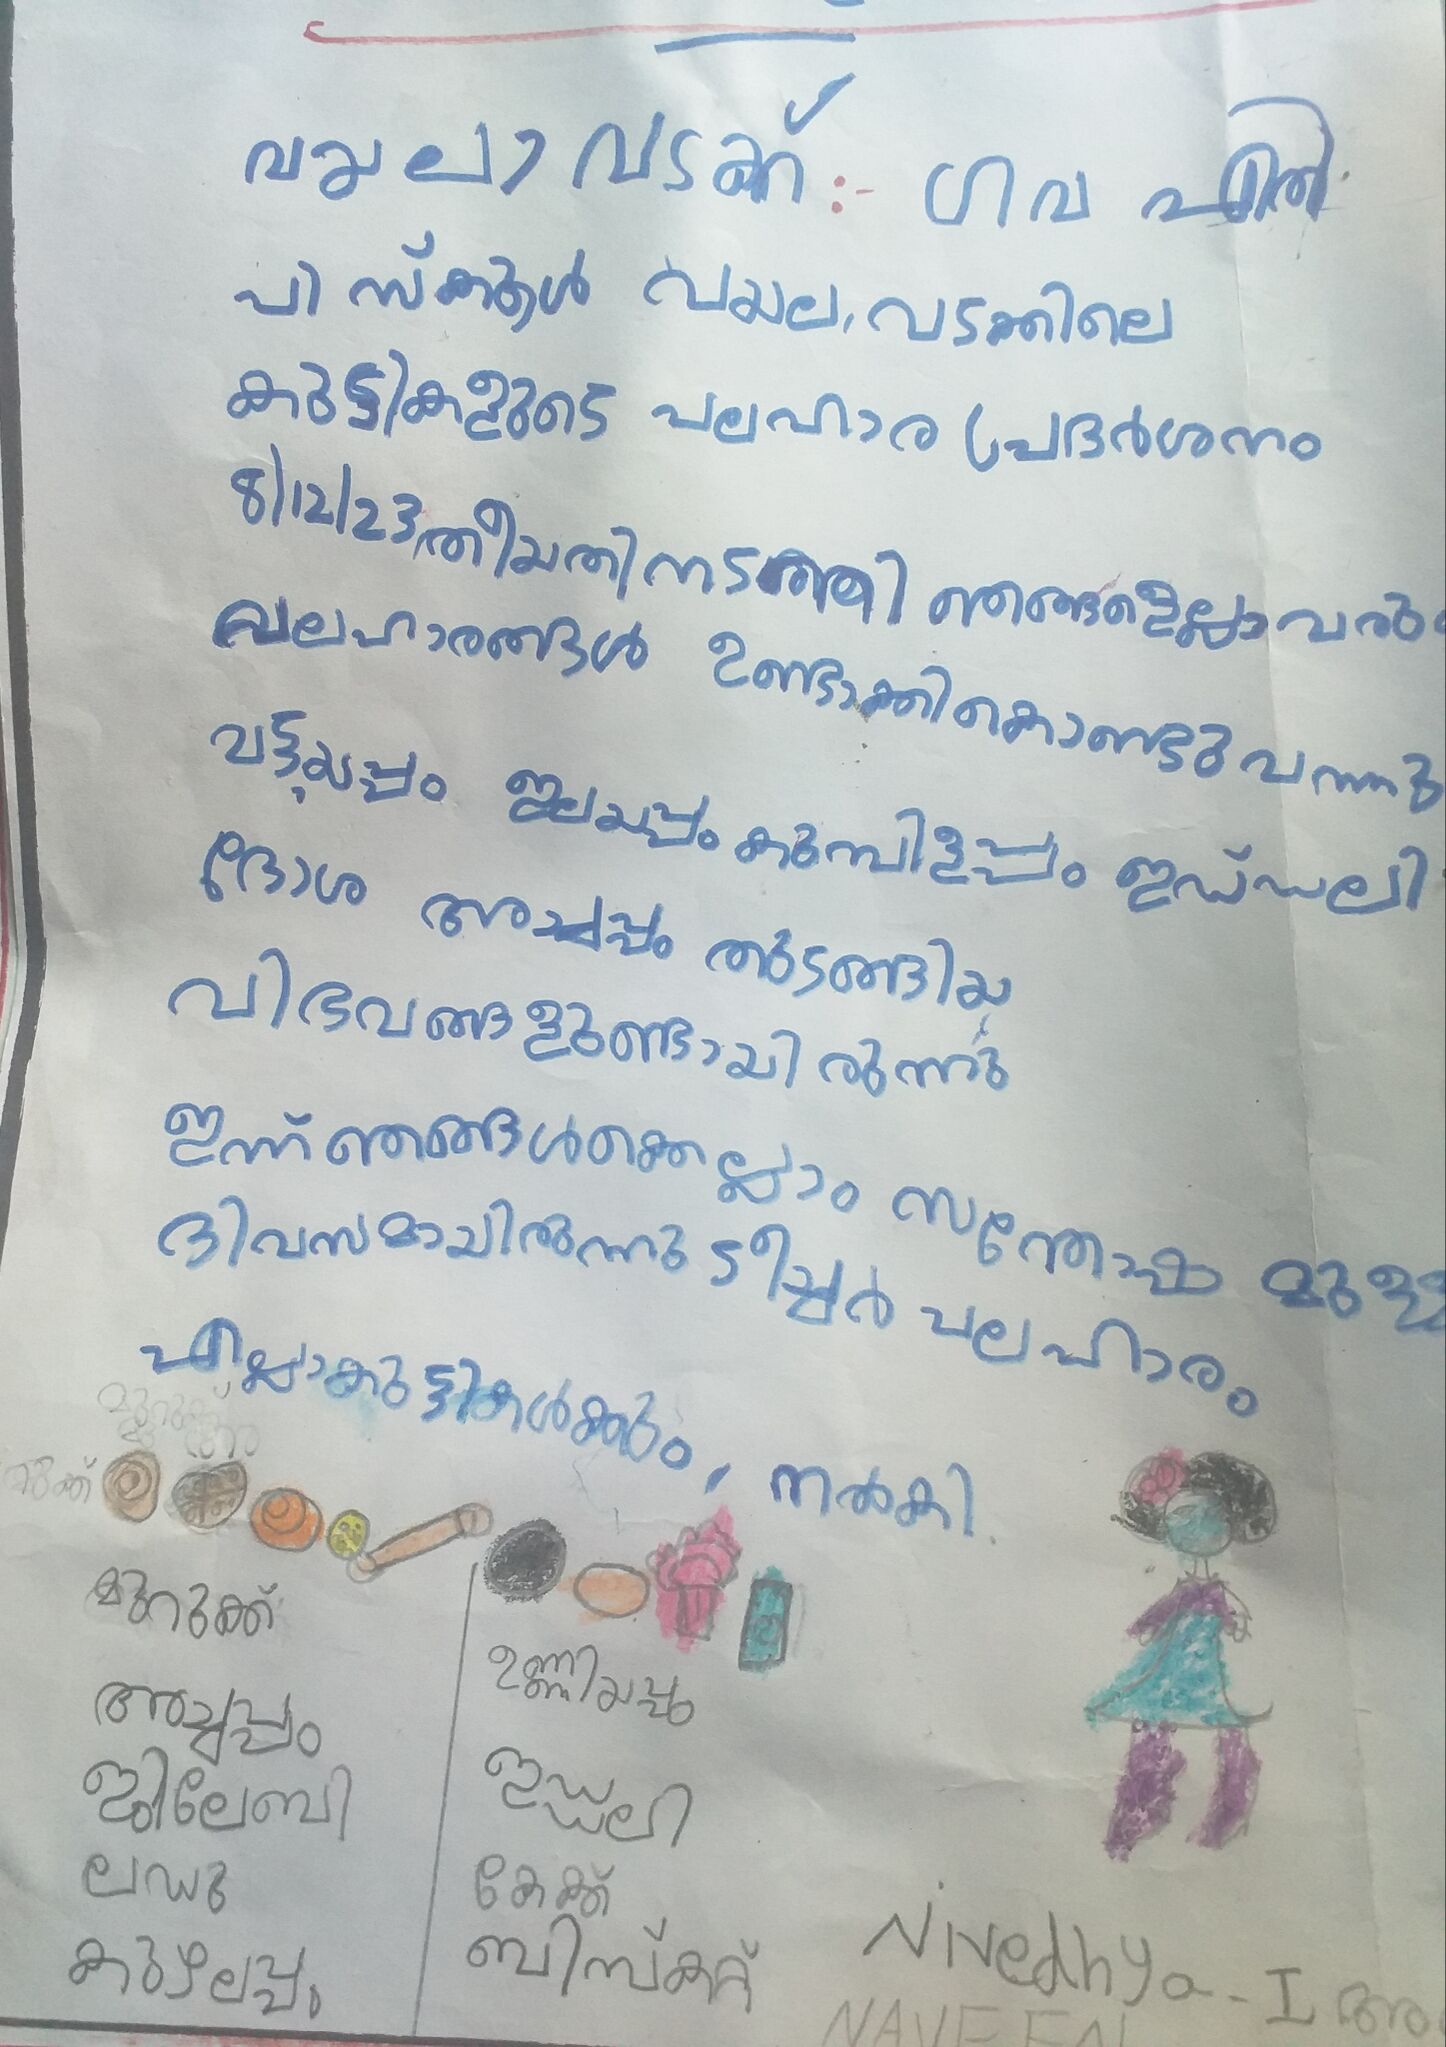 വയലാ വടക്ക് :- ഗവ എൽ
പി സ്കൂൾ വയല, വടക്കിലെ
കുട്ടികളുടെ പലഹാര പ്രദർശനം
8/12/23 തീയതി നടത്തി ഞങ്ങളെല്ലാവരും
പലഹാരങ്ങൾ ഉണ്ടാക്കികൊണ്ടുവന്നു
വട്ടയപ്പം ഇലയപ്പം കുമ്പിളപ്പം ഇഡ്ഡലി
ദോശ അച്ചപ്പം തുടങ്ങിയ
വിഭവങ്ങളുണ്ടായിരുന്നു
ഇന്ന് ഞങ്ങൾക്കെല്ലാം സന്തോഷ
ദിവസമായിരുന്നു ടീച്ചർ പലഹാരം
എല്ലാകുട്ടികൾക്കും, നൽകി.
മുറുക്ക്
അച്ചപ്പം
ജിലേബി
ലഡു
കുഴലപ്പം
ഉണ്ണിയപ്പം
ഇഡ്ഡലി
കേക്ക്
ബിസ്കറ്റ്
Nivedhya - I
NAVEEN